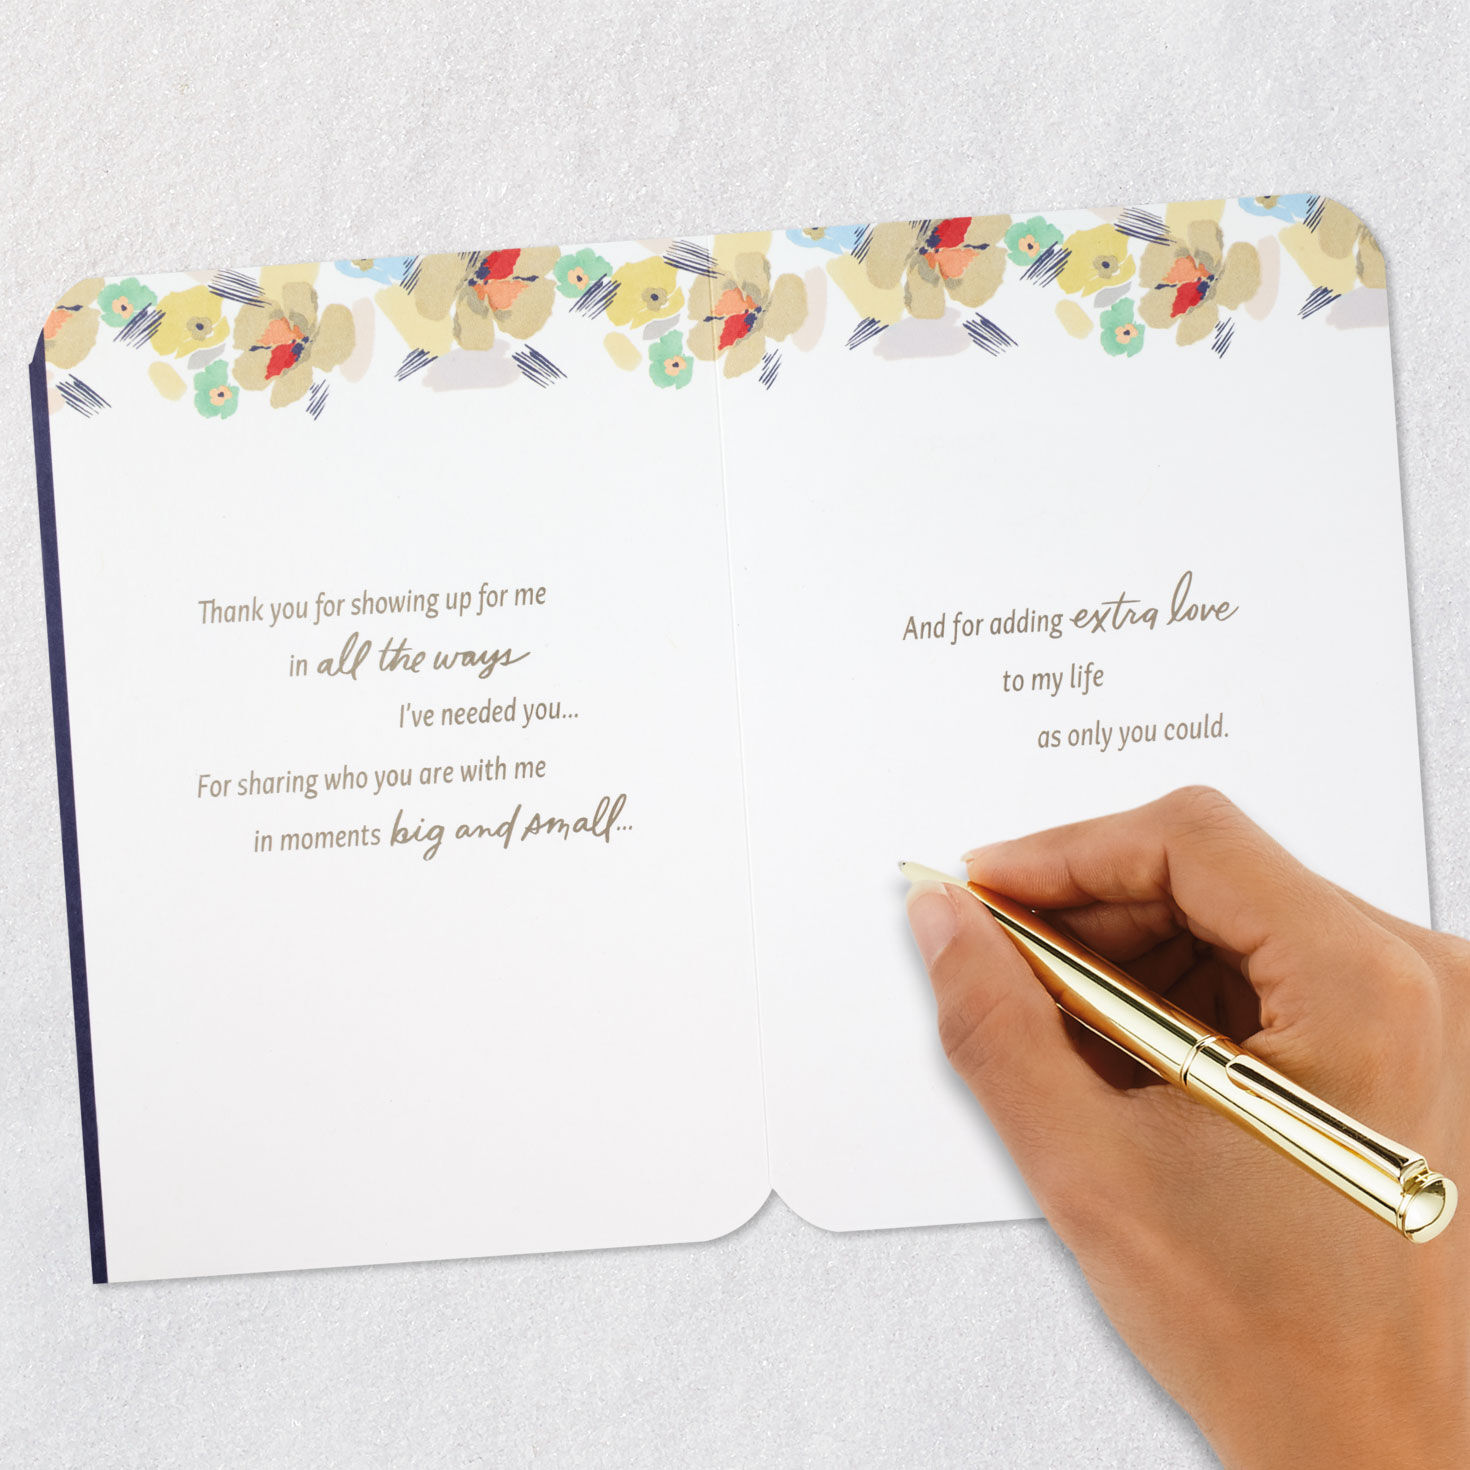 Thank you for showing up for me
in all the ways
I've needed you...
For sharing who you are with me
in moments big and small...
And for adding extra love
to my life
as only you could.